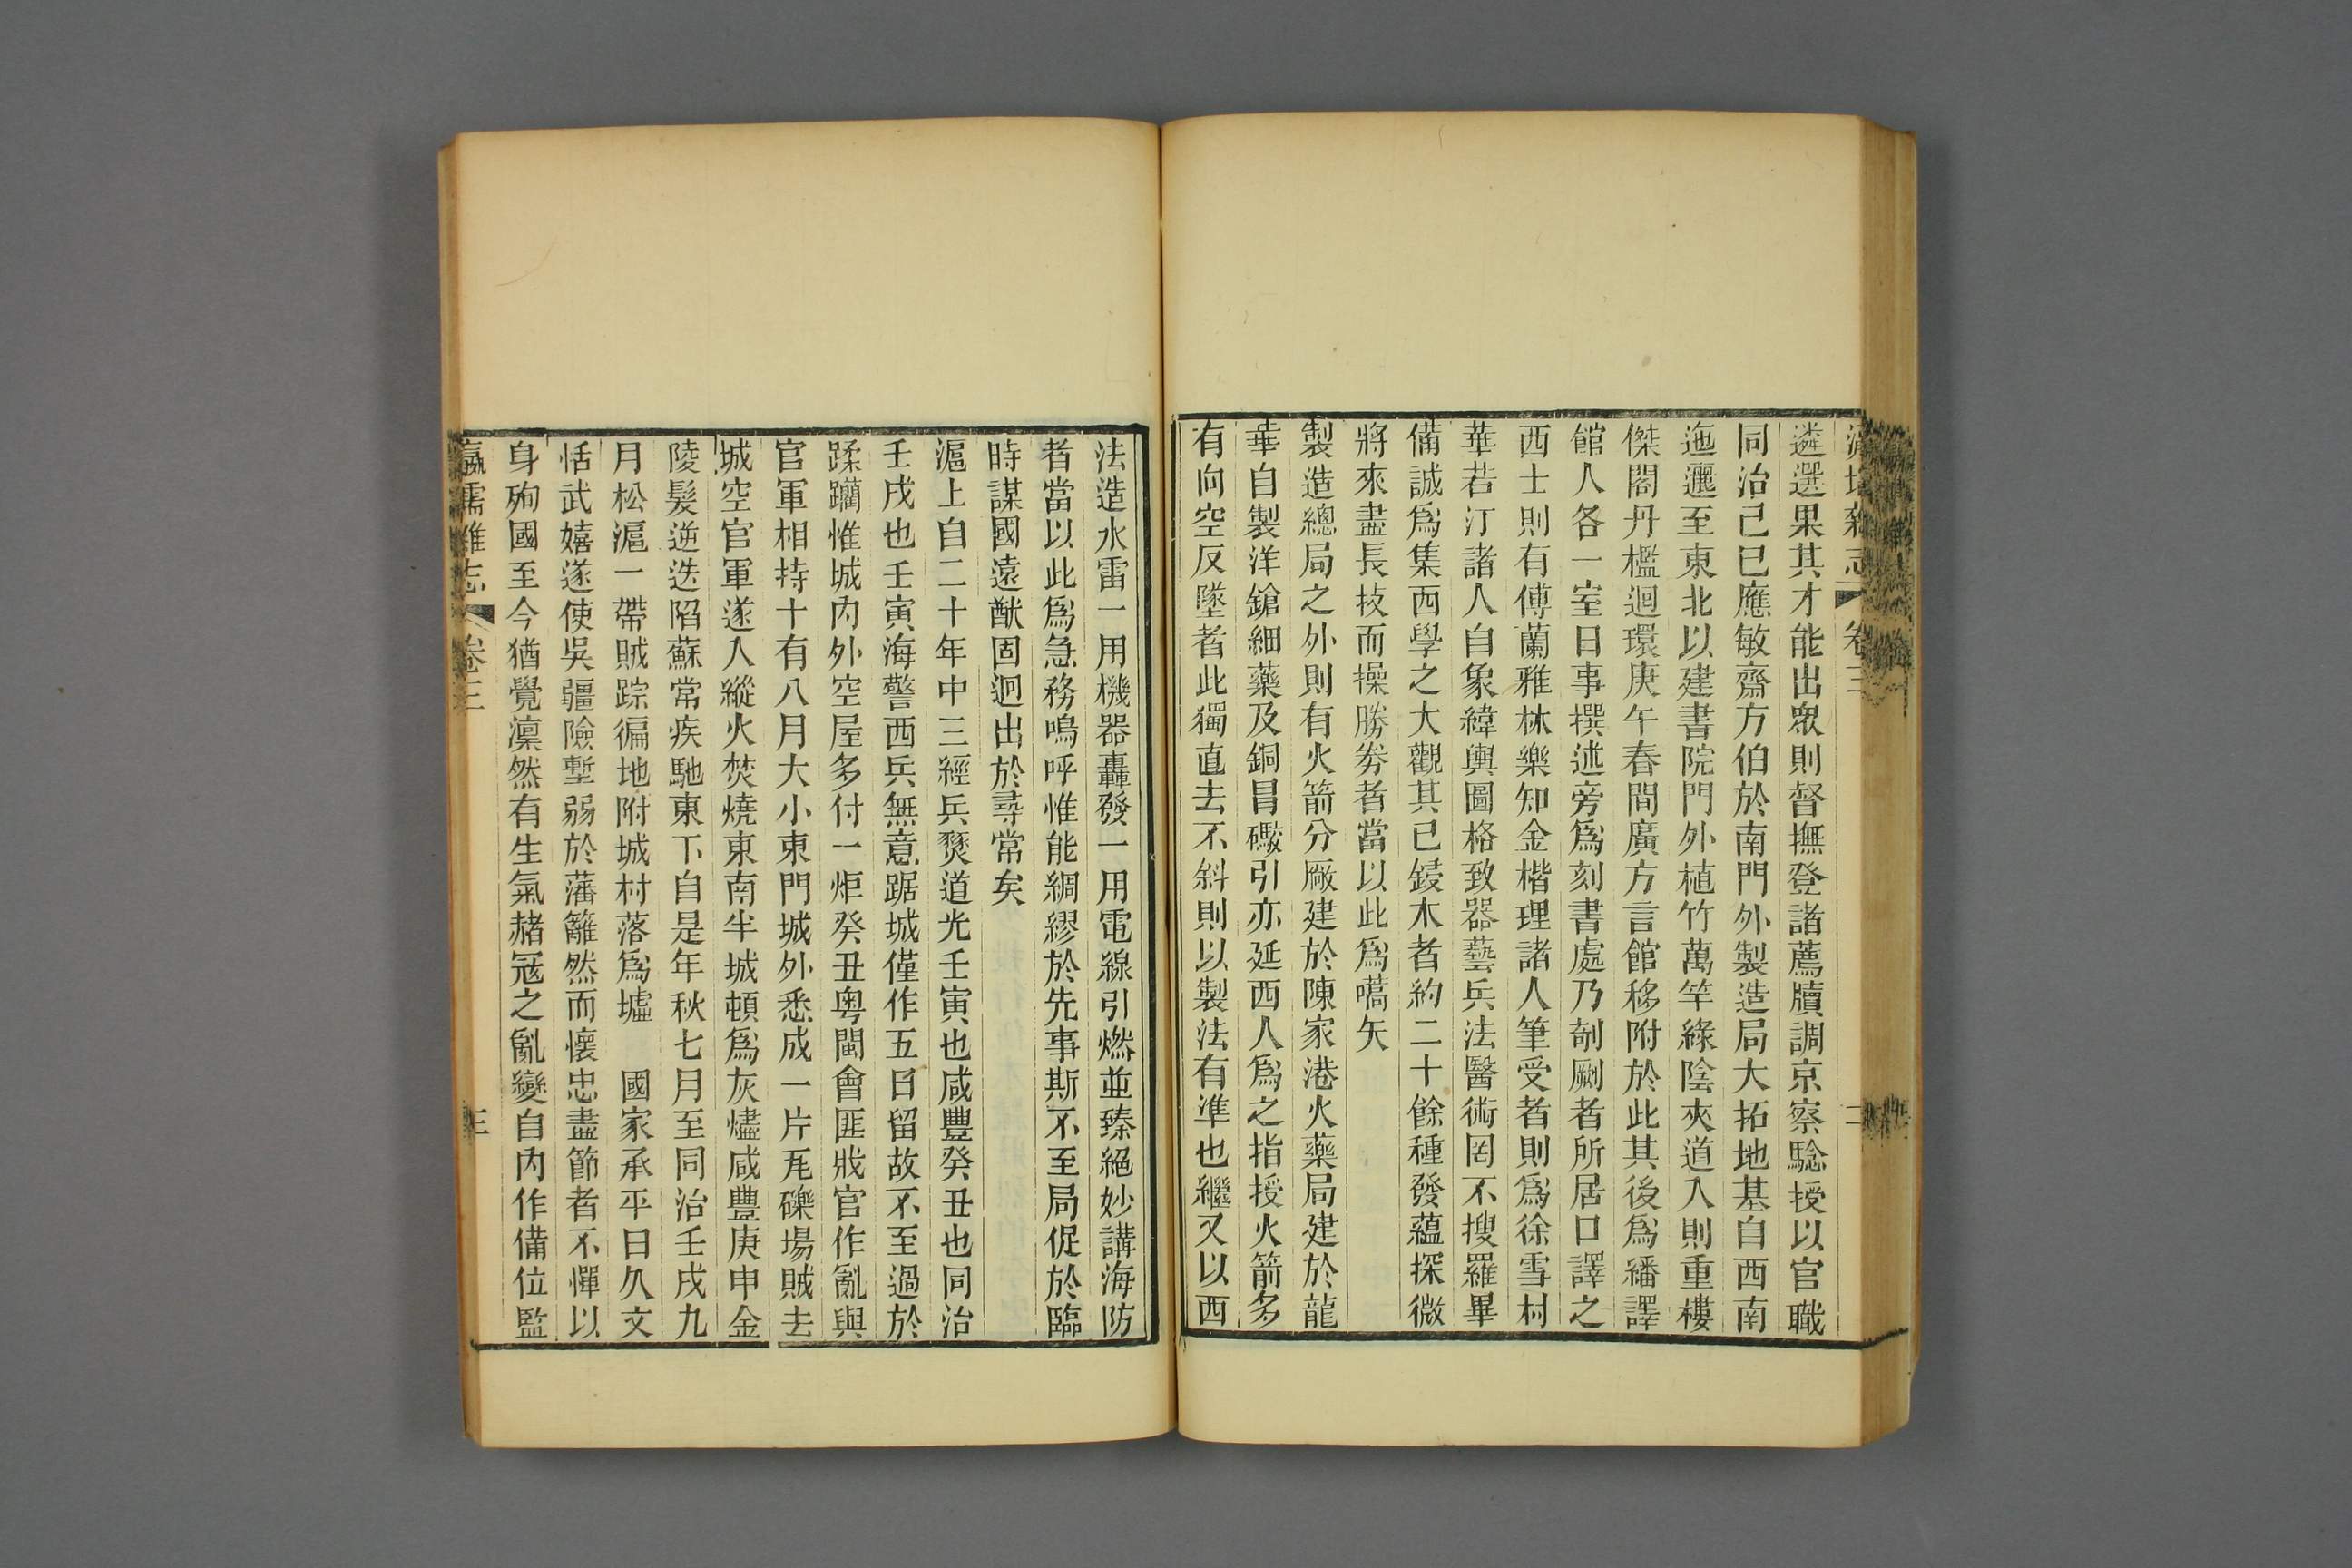 雜志 卷三 二
遴選果其才能出眾則督撫登諸薦牘調京察驗授以官職
同治己巳應敏齋方伯於南門外製造局大拓地基自西南
迤邐至東北以建書院門外植竹萬竿綠陰夾道入則重樓
傑閣丹檻迴環庚午春間廣方言館移附於此其後爲繙譯
館人各一室日事撰述旁爲刻書處乃剞劂者所居口譯之
西士則有傅蘭雅林樂知金楷理諸人筆受者則爲徐雪村
華若汀諸人自象緯輿圖格致器藝兵法醫術罔不搜羅畢
備誠爲集西學之大觀其已鋟木者約二十餘種發蘊探微
將來盡長技而操勝券者當以此爲嚆矢
製造總局之外則有火箭分廠建於陳家港火藥局建於龍
華自製洋鎗細藥及銅冒礮引亦延西人爲之指授火箭多
有向空反墜者此獨直去不斜則以製法有準也繼又以西
法造水雷一用機器轟發一用電線引燃並臻絕妙講海防
者當以此爲急務嗚呼惟能綢繆於先事斯不至局促於臨
時謀國遠猷固迥出於尋常矣
滬上自二十年中三經兵燹道光壬寅也咸豐癸丑也同治
壬戌也壬寅海警西兵無意踞城僅作五日留故不至過於
蹂躪惟城內外空屋多付一炬癸丑粵閩會匪戕官作亂與
官軍相持十有八月大小東門城外悉成一片瓦礫場賊去
城空官軍遂入縱火焚燒東南半城頓爲灰燼咸豐庚申金
陵髮逆迭陷蘇常疾馳東下自是年秋七月至同治壬戌九
月松滬一帶賊踪徧地附城村落爲墟　國家承平日久文
恬武嬉遂使吳疆險塹弱於藩籬然而懷忠盡節者不憚以
身殉國至今猶覺凜然有生氣赭冦之亂變自內作備位監
瀛壖雜志 卷三 三